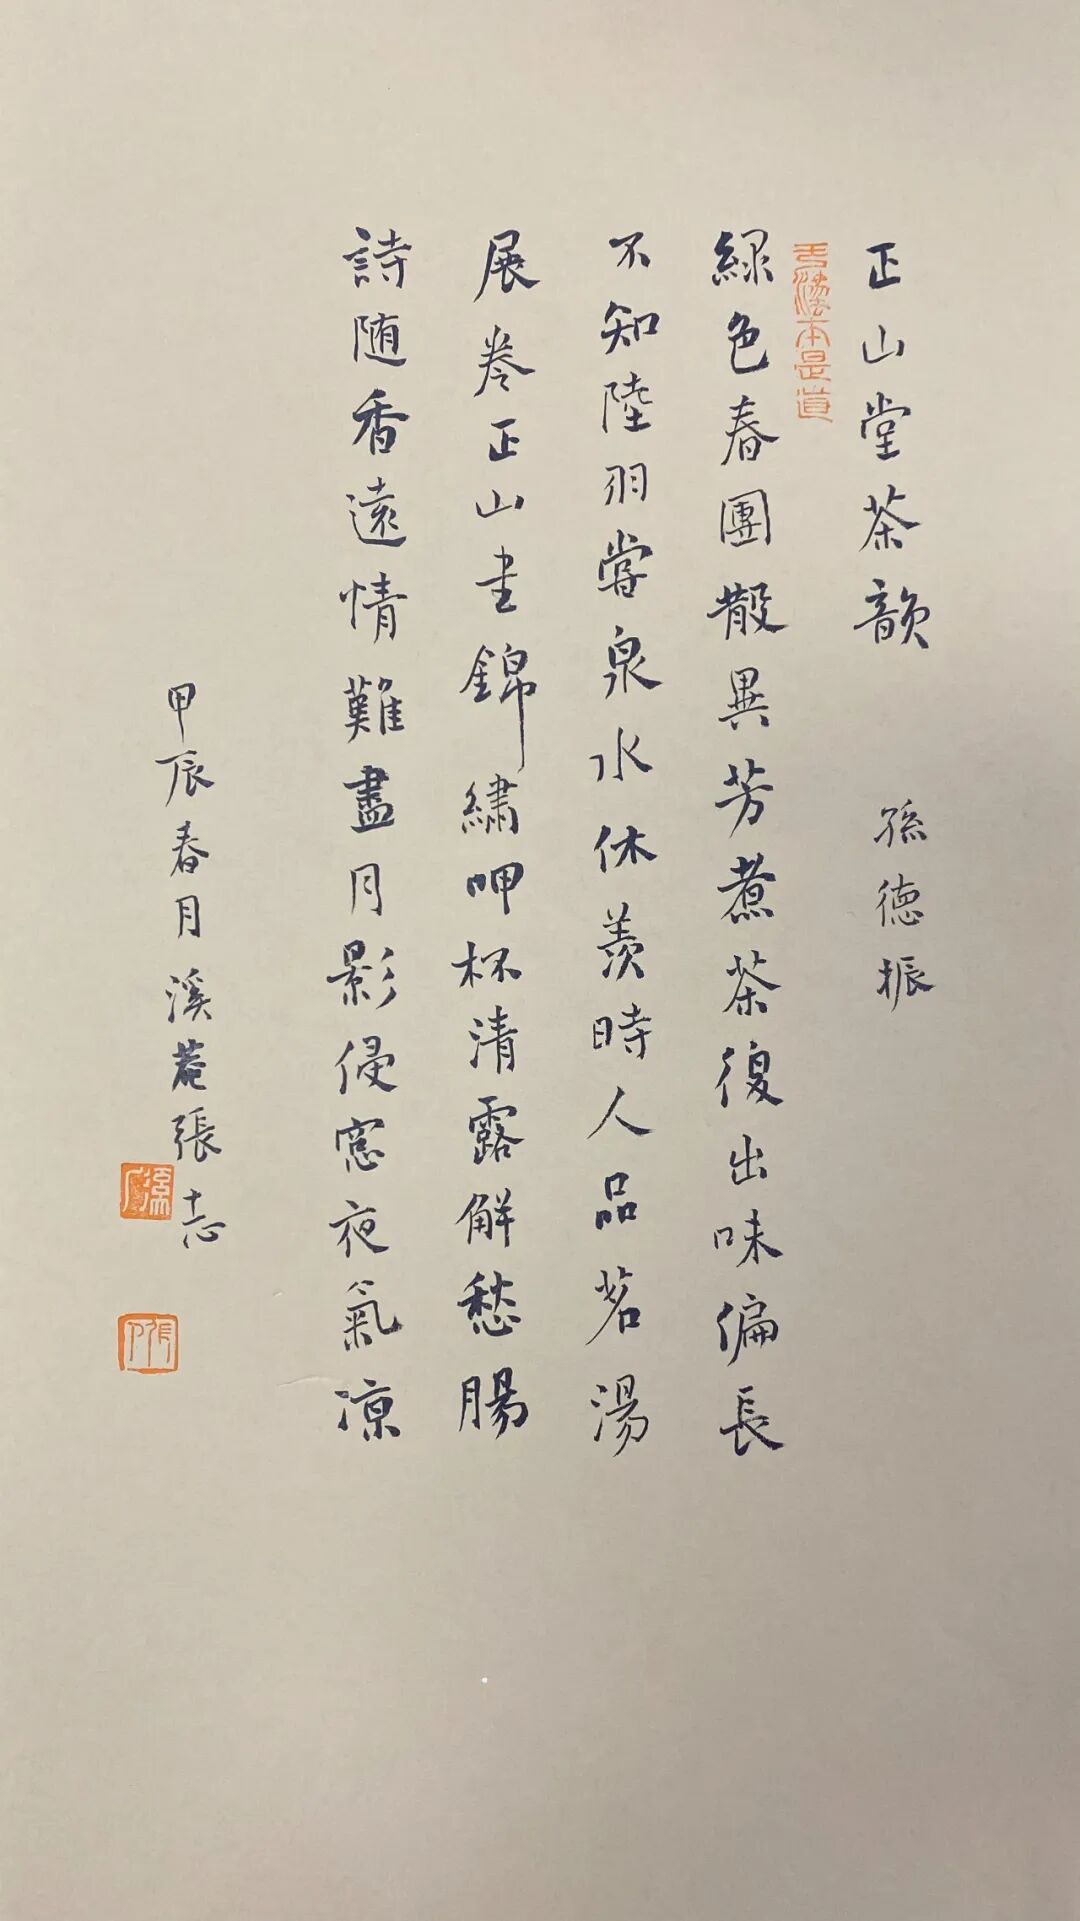 正山堂茶韻 孫德振
緑色春團散異芳煮茶復出味偏長
不知陸羽嘗泉水休羨時人品茗湯
展卷正山圭錦繡呷杯清露解愁腸
詩随香遠情難盡月影侵窓夜氣凉
甲辰春月溪菴張志